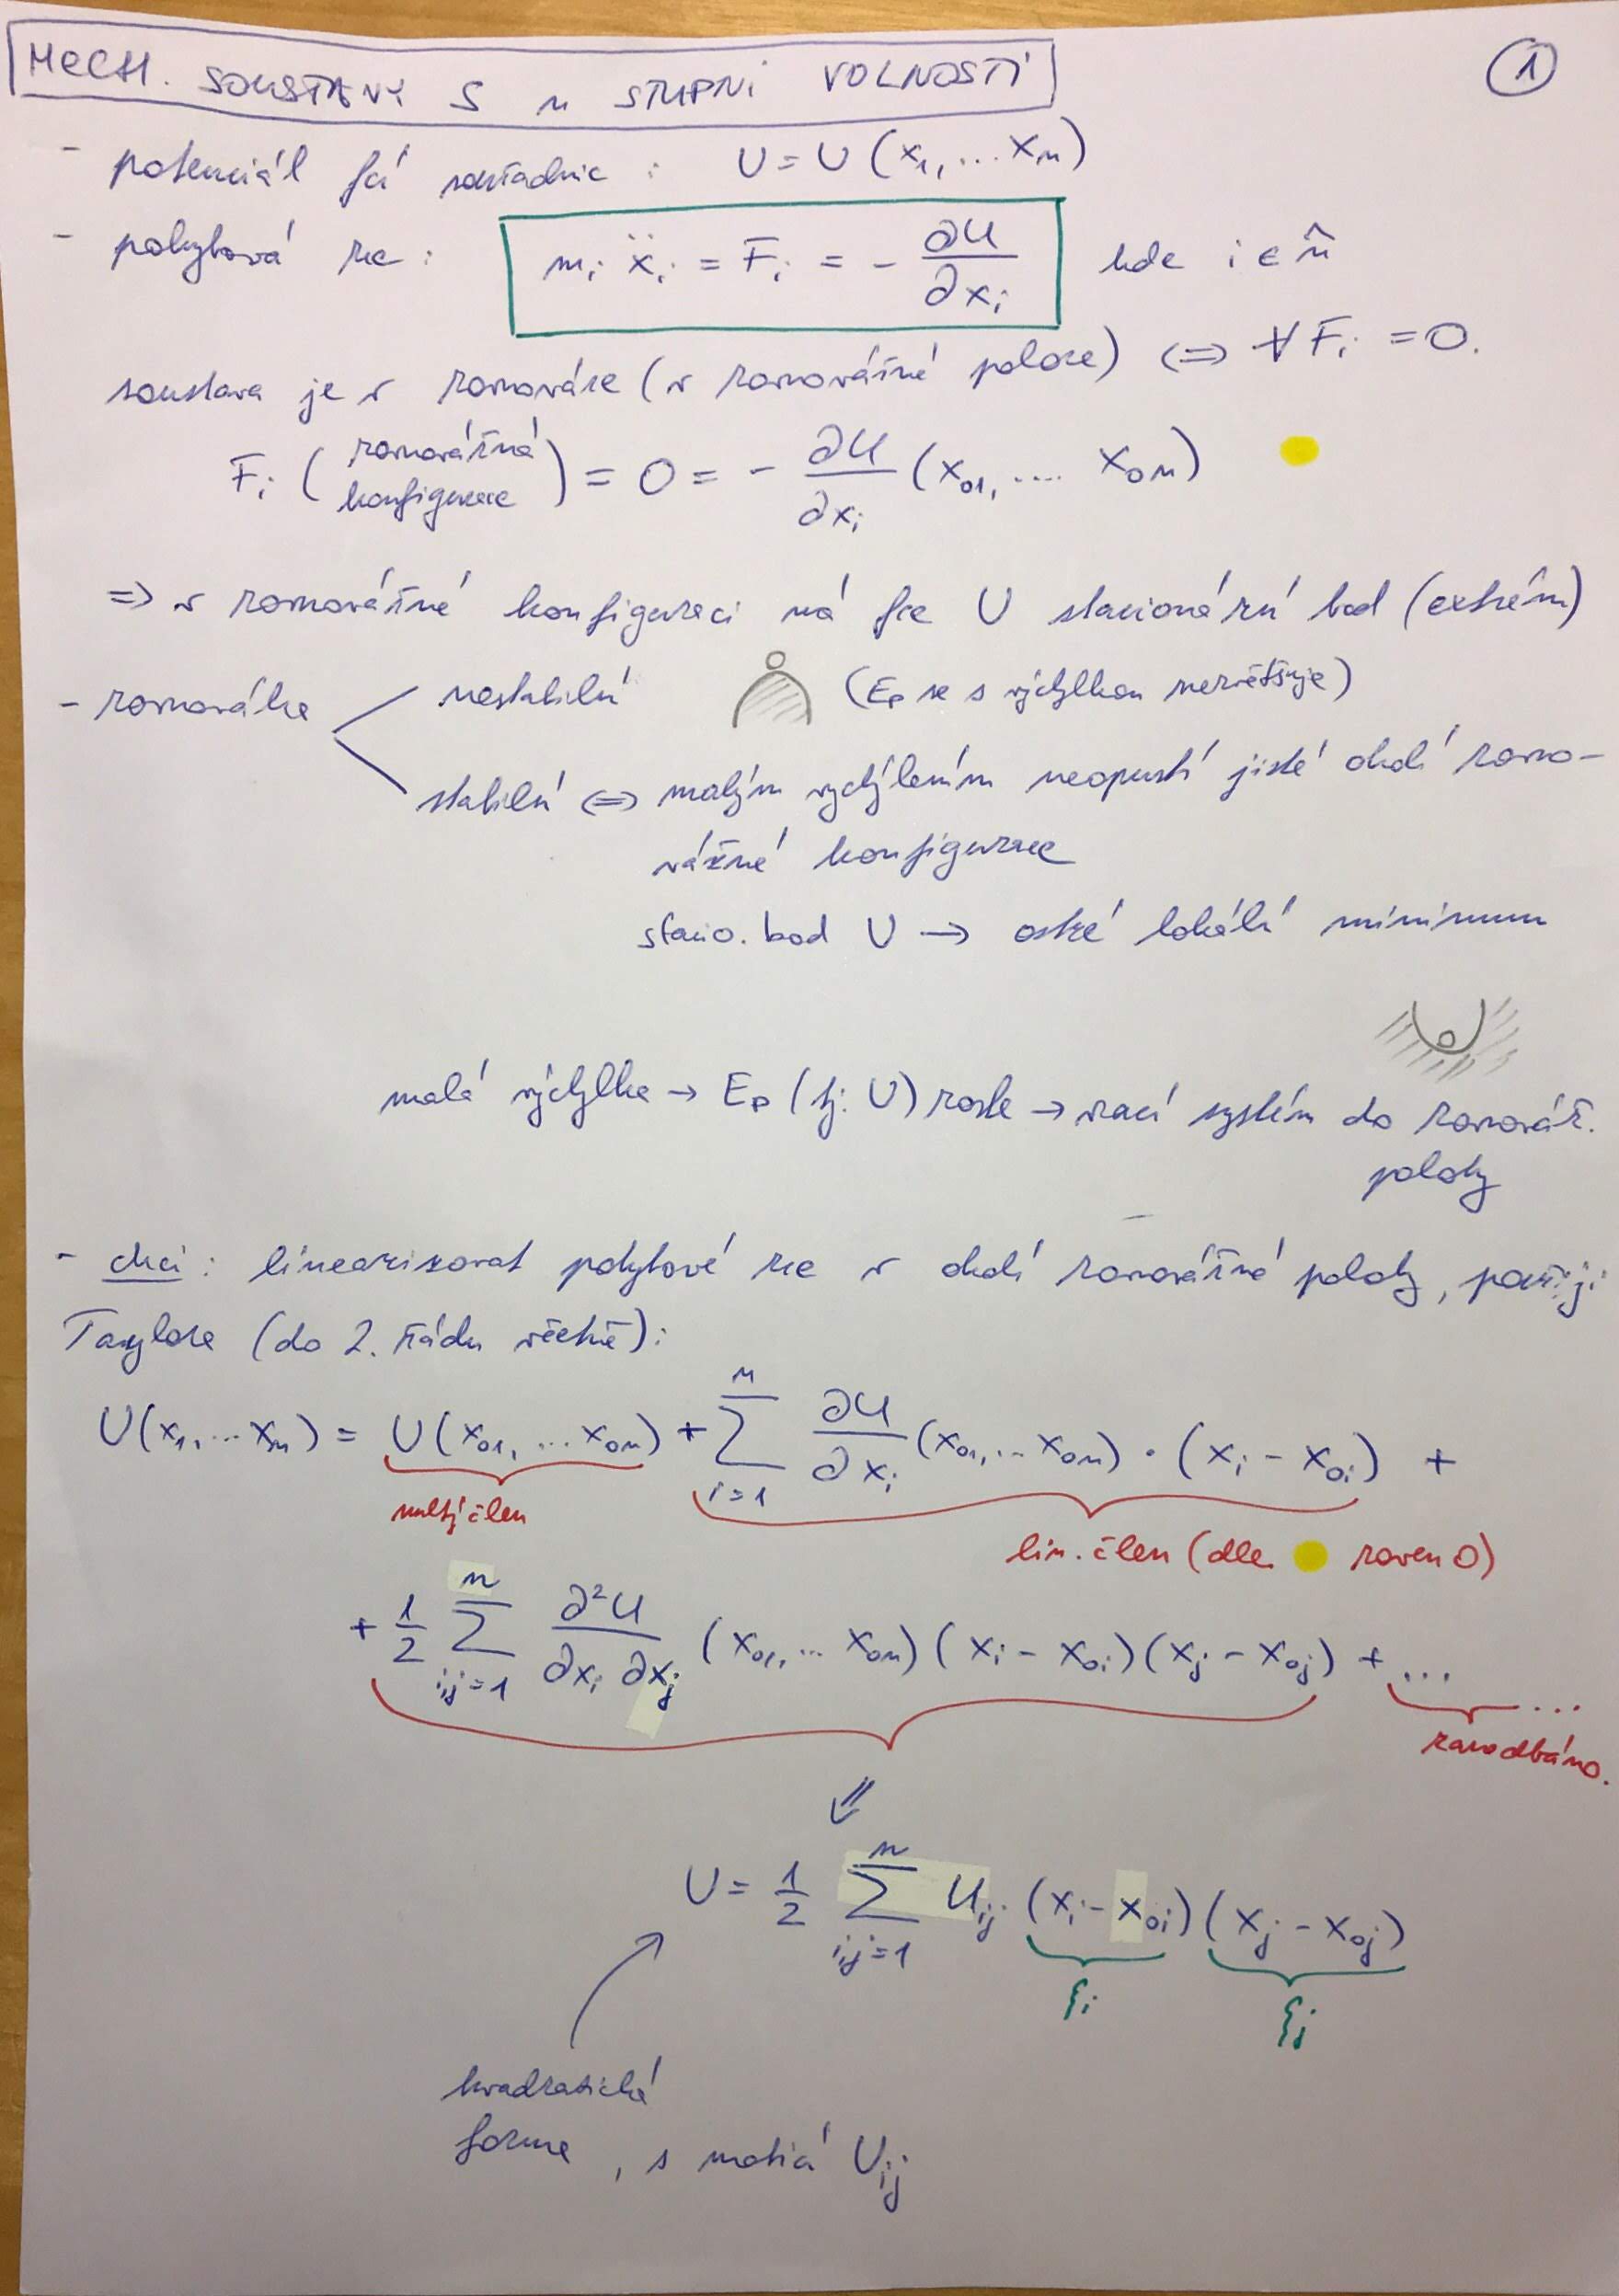 MECH. SOUSTAVY S n STUPNI VOLNOSTÍ
①
- potenciál fcí souřadnic : U = U (x₁, ... xₙ)
- pohybová rce : mᵢ ẍᵢ = Fᵢ = - ∂U/∂xᵢ kde i ∈ n̂
soustava je v rovnováze (v rovnovážné poloze) <=> ∀ Fᵢ = 0.
Fᵢ (rovnovážná konfigurace) = 0 = - ∂U/∂xᵢ (x₀₁, .... x₀ₙ)
=> v rovnovážné konfiguraci má fce U stacionární bod (extrém)
- rovnováha
nestabilní (Eₚ se s výchylkou nezvětšuje)
stabilní <=> malým vychýlením neopustí jisté okolí rovno-
vážné konfigurace
stacio. bod U → ostré lokální minimum
malá výchylka → Eₚ (tj. U) roste → vrací systém do rovnováž.
polohy
- chci : linearizovat pohybové rce v okolí rovnovážné polohy, použiji
Taylora (do 2. řádu včetně) :
U(x₁, ... xₙ) = U(x₀₁, ... x₀ₙ) + ∑ᵢ₌₁ⁿ ∂U/∂xᵢ (x₀₁, ... x₀ₙ) · (xᵢ - x₀ᵢ) +
nultý člen
lin. člen (dle roven 0)
+ 1/2 ∑ᵢ,ⱼ₌₁ⁿ ∂²U/∂xᵢ ∂xⱼ (x₀₁, ... x₀ₙ) (xᵢ - x₀ᵢ)(xⱼ - x₀ⱼ) + ...
...
zanedbáno.
⇓
U = 1/2 ∑ᵢ,ⱼ₌₁ⁿ Uᵢⱼ (xᵢ - x₀ᵢ)(xⱼ - x₀ⱼ)
ξᵢ ξⱼ
kvadratická
forma, s maticí Uᵢⱼ